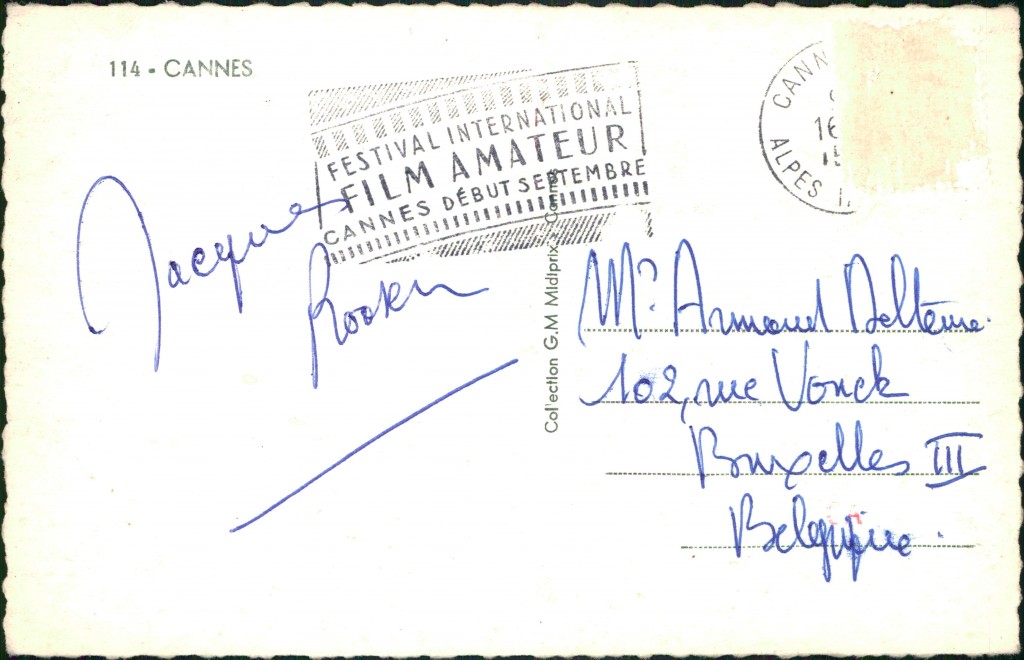 114 - CANNES
FESTIVAL INTERNATIONAL
FILM AMATEUR
CANNES DÉBUT SEPTEMBRE
CANN
16
15
ALPES
Jacques
Collection G.M Midiprix - Cannes
Mr. Armand
102, rue Vonck
Bruxelles III
Belgique.